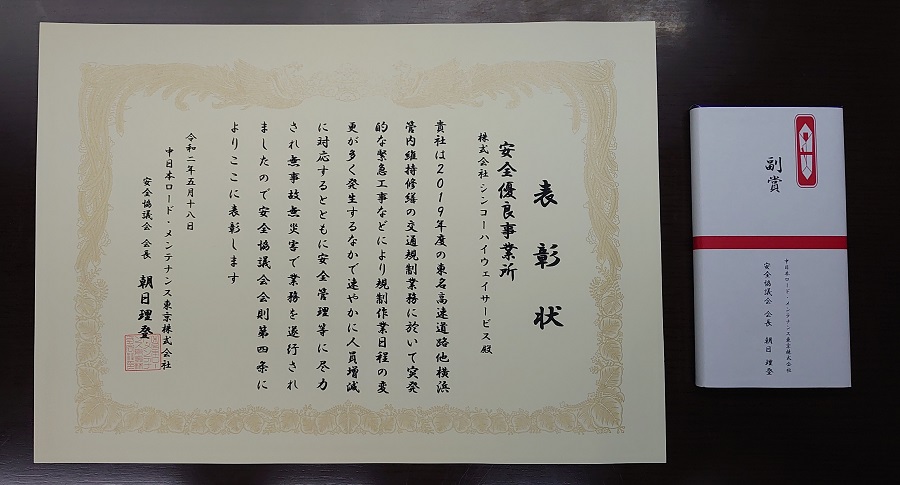 表彰状
安全優良事業所
株式会社 シンコーハイウェイサービス 殿
貴社は2019年度の東名高速道路他横浜
管内維持修繕の交通規制業務に於いて突発
的な緊急工事などにより規制作業日程の変
更が多く発生するなかで速やかに人員増減
に対応するとともに安全管理等に尽力
され無事故無災害で業務を遂行され
ましたので安全協議会会則第四条に
よりここに表彰します
令和二年五月十八日
中日本ロード・メンテナンス東京株式会社
安全協議会 会長 朝日理登
副賞
中日本ロード・メンテナンス東京株式会社
安全協議会 会長 朝日 理登